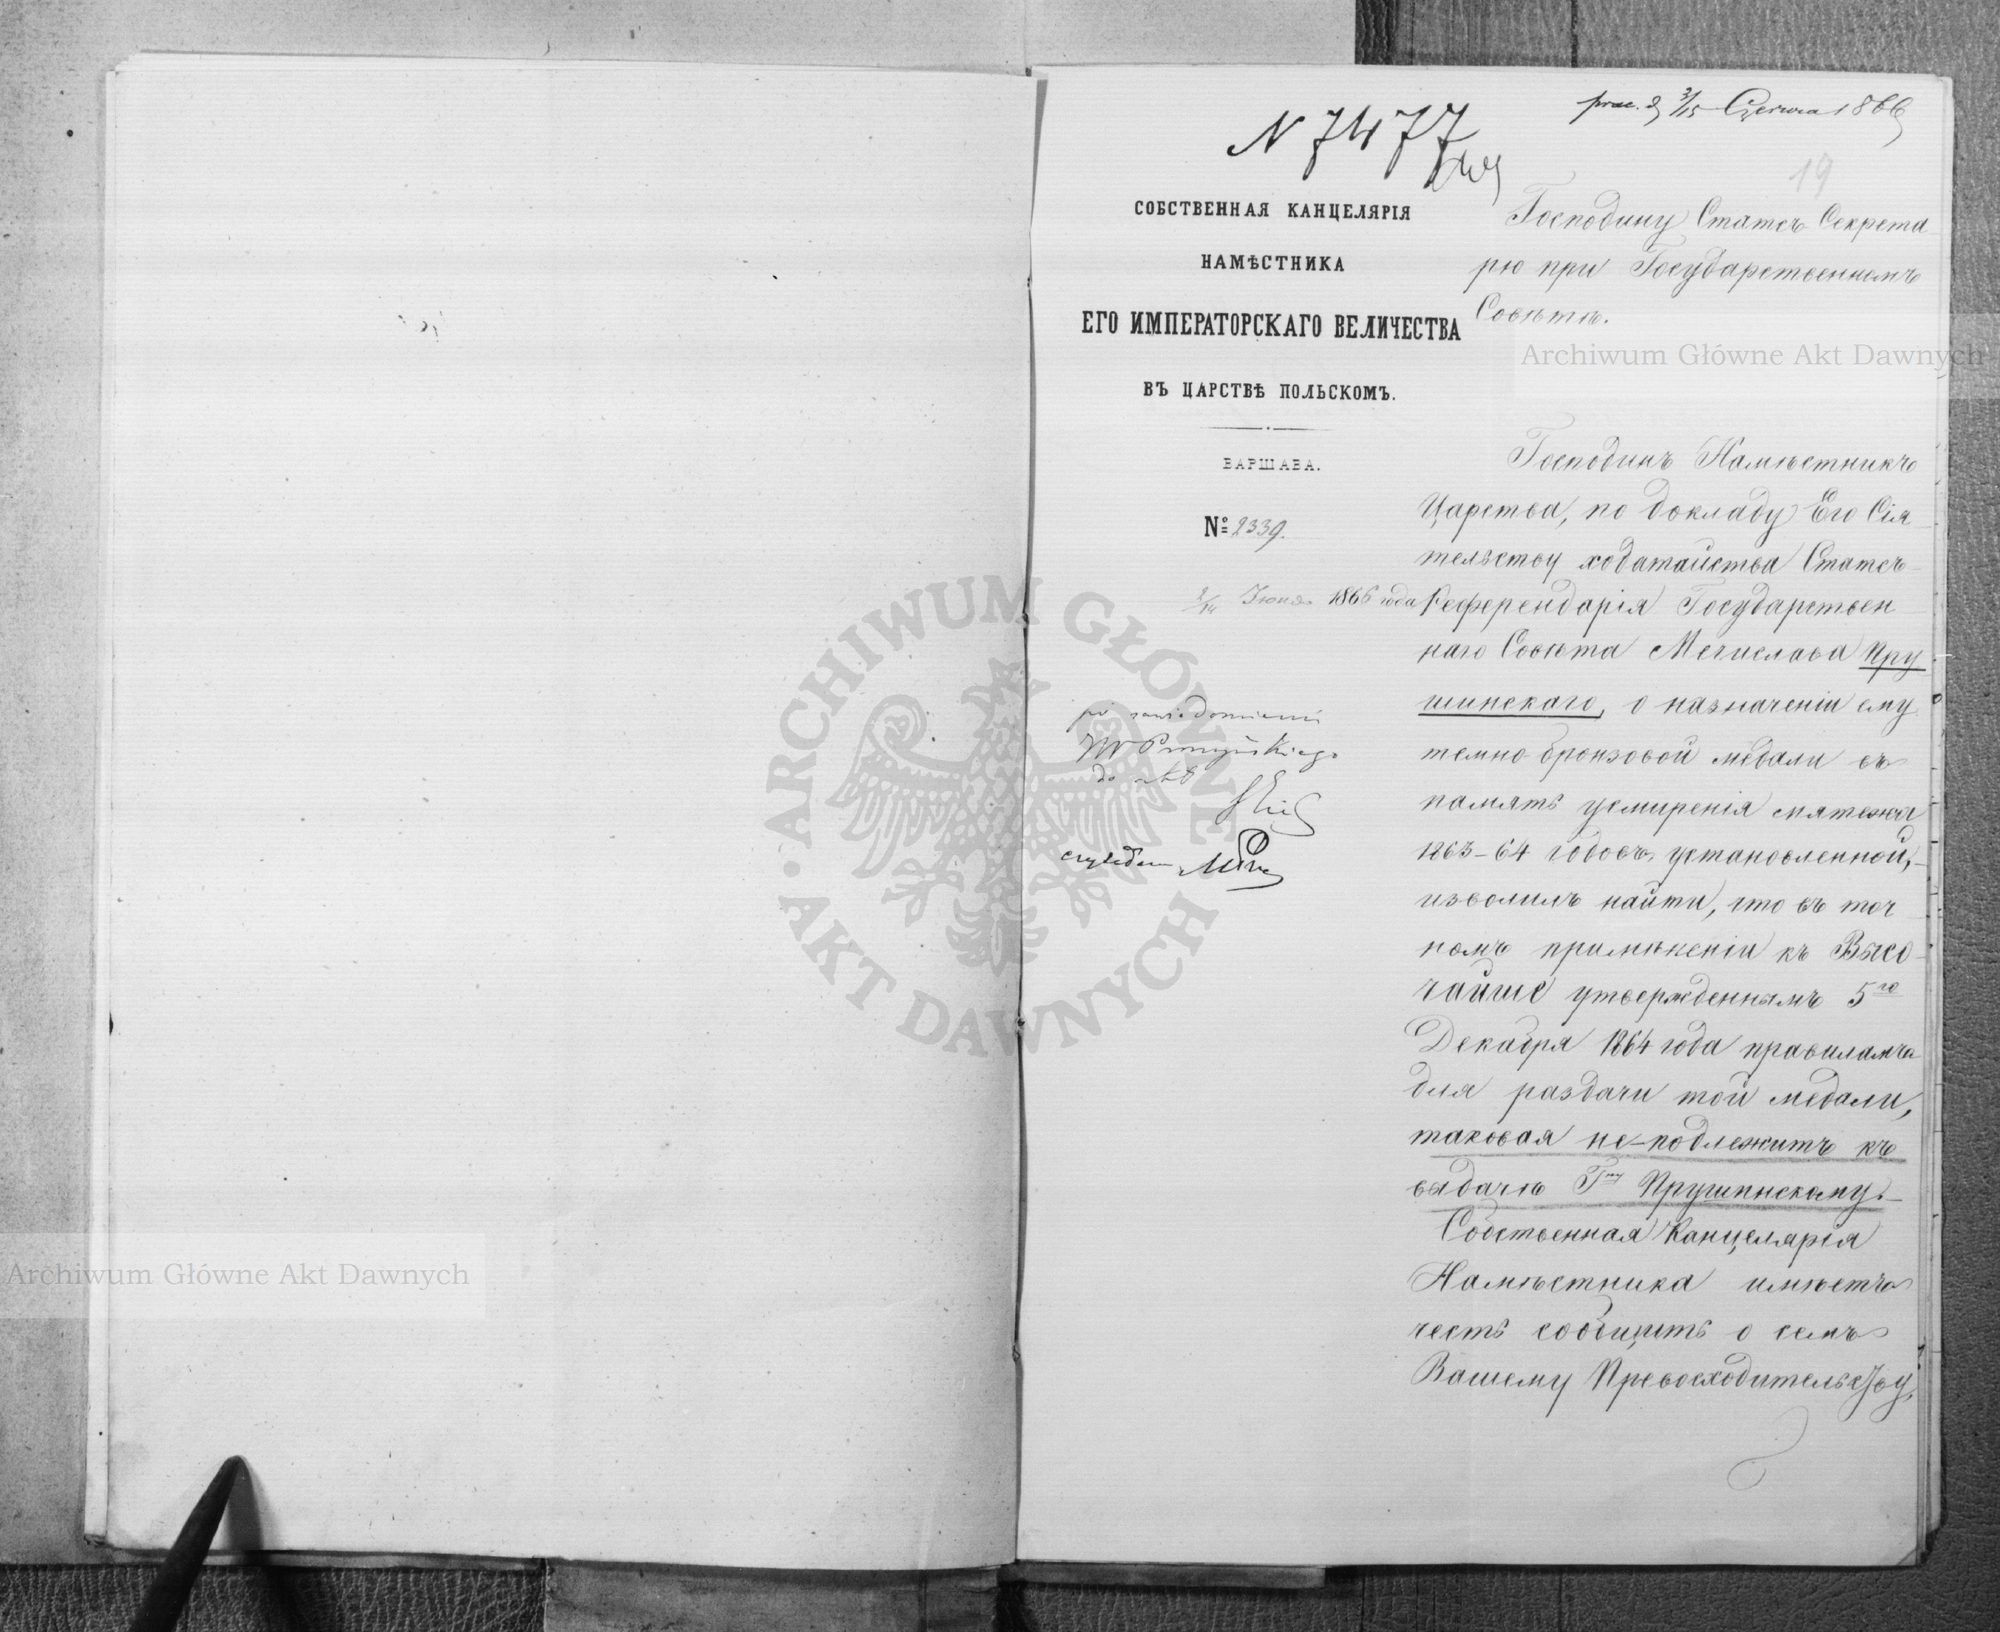 prae. d. 3/15 Czerwca 1866
N 7477
19
СОБСТВЕННАЯ КАНЦЕЛЯРІЯ
НАМѢСТНИКА
ЕГО ИМПЕРАТОРСКАГО ВЕЛИЧЕСТВА
ВЪ ЦАРСТВѢ ПОЛЬСКОМЪ.
ВАРШАВА.
№ 2339.
2/14 Іюня 1866 года
po zawiadomieniu
JW Pruszyńskiego
do akt
czytałem
Господину Статсъ Секрета
рю при Государственномъ
Совѣтѣ.
Господинъ Намѣстникъ
Царства, по докладу Его Сія
тельству ходатайства Статсъ-
Референдарія Государствен
наго Совѣта Мечислава Пру
шинскаго, о назначеніи ему
темно бронзовой медали въ
память усмиренія мятежа
1863-64 годовъ установленной,
изволилъ найти, что въ точ
номъ примѣненіи къ Высо-
чайше утвержденнымъ 5го
Декабря 1864 года правиламъ
для раздачи той медали,
таковая не-подлежитъ къ
выдачѣ Гну Прушинскому.
Собственная Канцелярія
Намѣстника имѣетъ
честь сообщить о семъ
Вашему Превосходительству,
Archiwum Główne Akt Dawnych
Archiwum Główne Akt Dawnych
ARCHIWUM GŁÓWNE AKT DAWNYCH